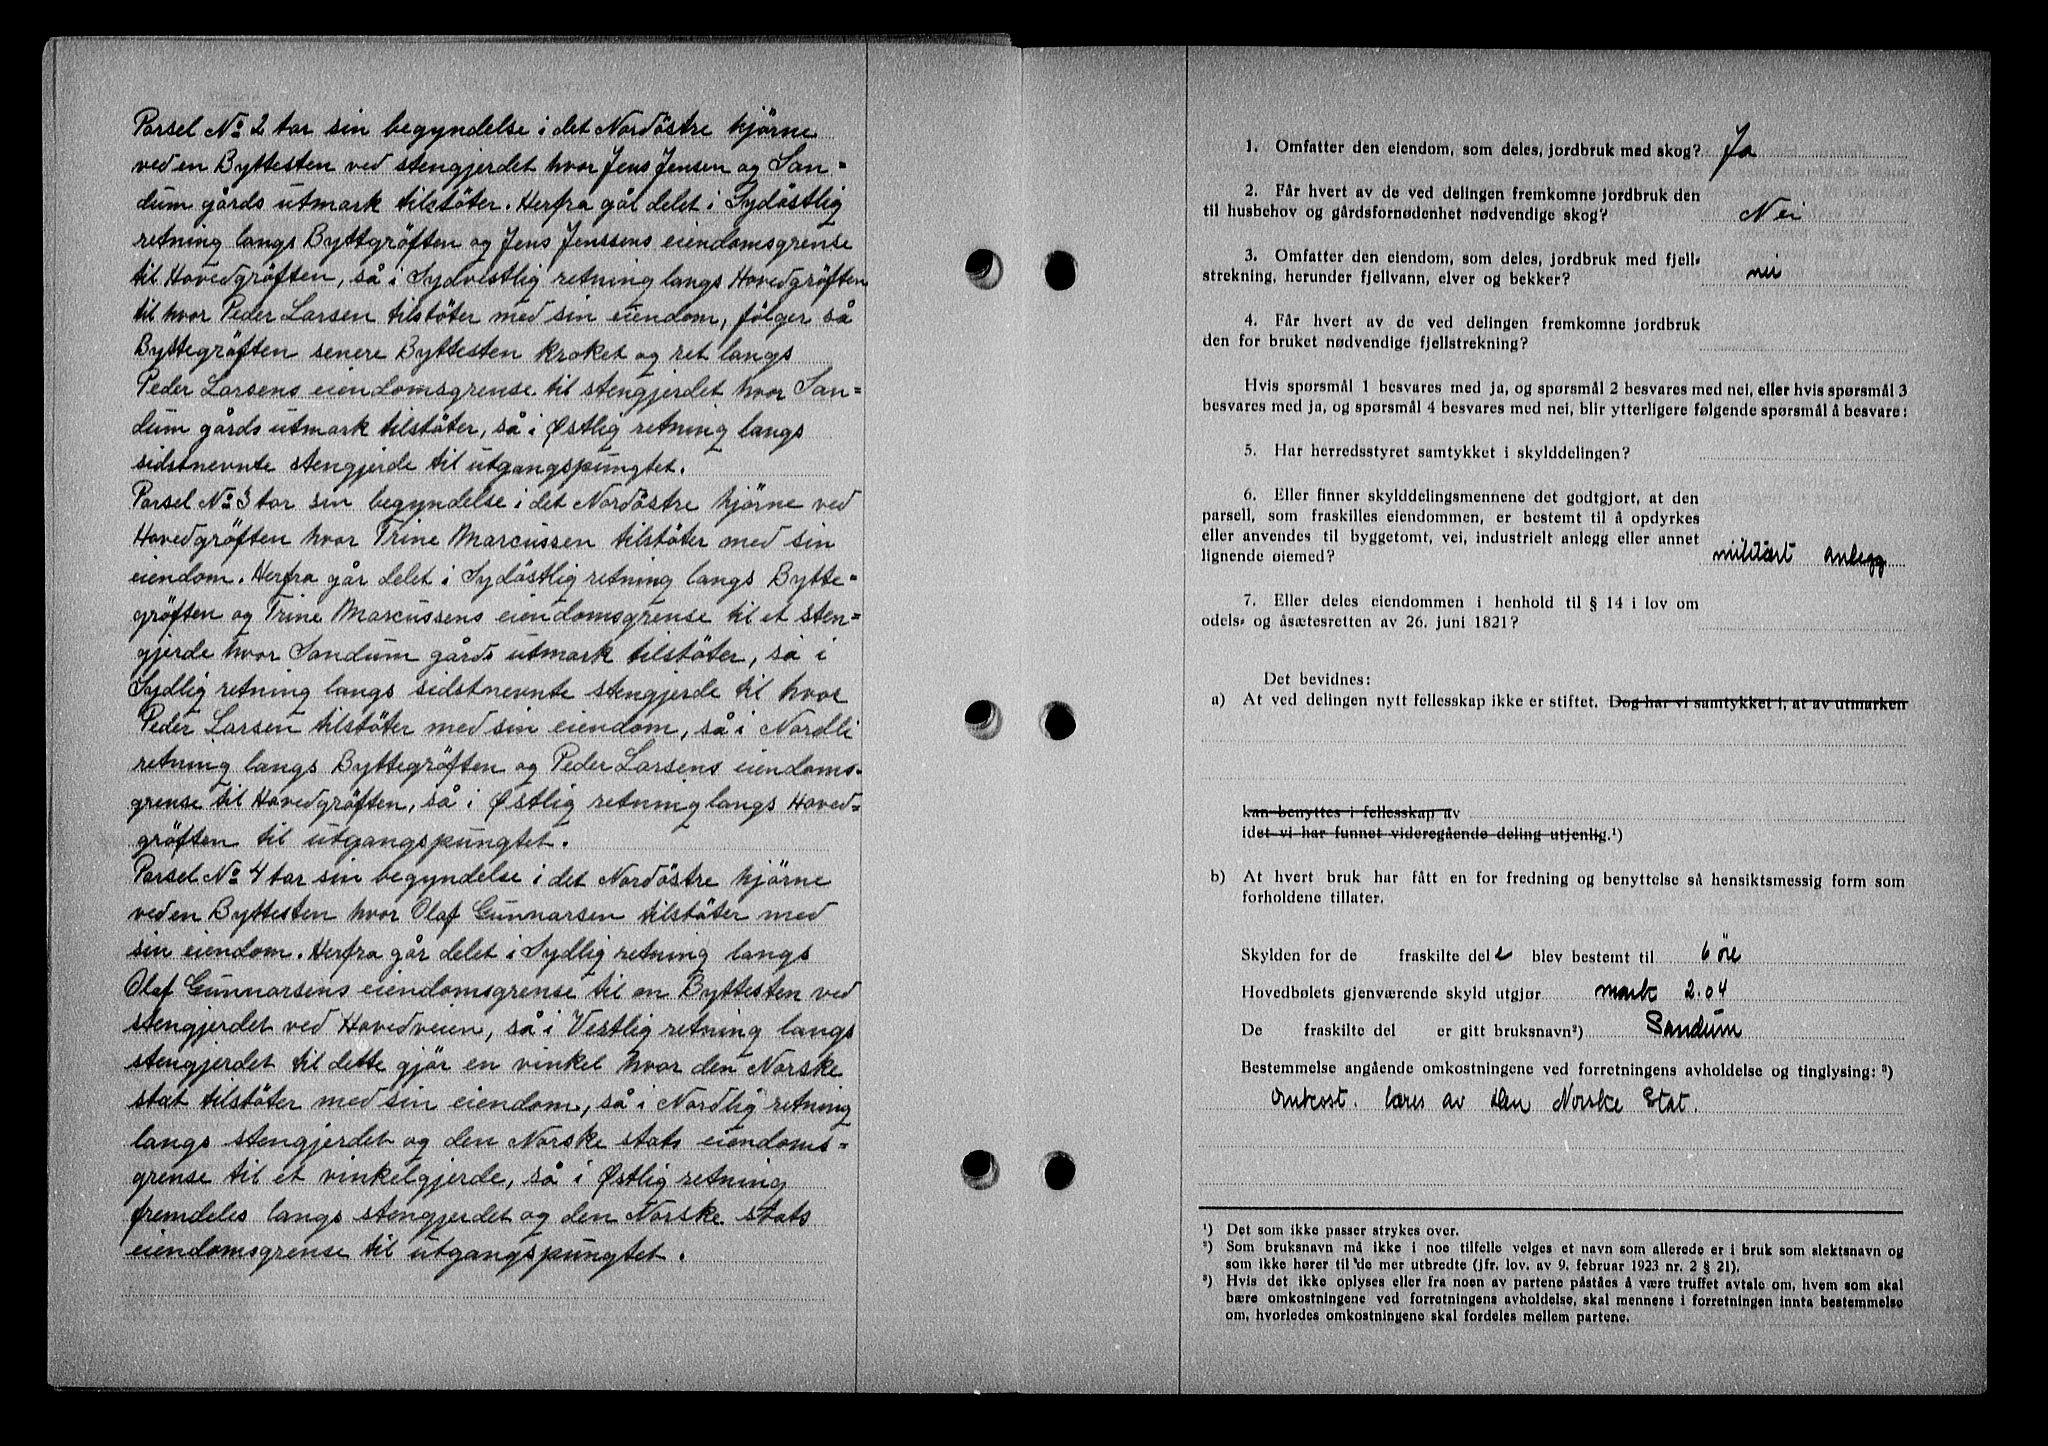 Parsel No 2 tar sin begyndelse i det Nordöstre hjörne
ved en Byttesten ved stengjerdet hvor Jens Jensen og San=
dum gårds utmark tilstöter. Herfra gål delet i Sydöstlig
retning langs Byttgröften og Jens Jenssens eiendomsgrense
til Hovedgröften, så i Sydvestlig retning langs Hovedgröften
til hvor Peder Larsen tilstöter med sin eiendom, fölger så
Byttegröften senere Byttesten kroket og ret langs
Peder Larsens eiendomsgrense til stengjerdet hvor San=
dum gårds utmark tilstöter, så i Østlig retning langs
sidstnevnte stengjerde til utgangspungtet.
Parsel No 3 tar sin begyndelse i det Nordöstre hjörne ved
Hovedgröften hvor Trine Marcussen tilstöter med sin
eiendom. Herfra går delet i Sydöstlig retning langs Bytte=
gröften og Trine Marcussens eiendomsgrense til et sten=
gjerde hvor Sandum gårds utmark tilstöter, så i
Sydlig retning langs sidstnevnte stengjerde til hvor
Peder Larsen tilstöter med sin eiendom, så i Nordli
retning langs Byttegröften og Peder Larsens eiendoms=
grense til Hovedgröften, så i Østlig retning langs Hoved=
gröften til utgangspungtet.
Parsel No 4 tar sin begyndelse i det Nordöstre hjörne
ved en Byttesten hvor Olaf Gunnarsen tilstöter med
sin eiendom. Herfra går delet i Sydlig retning langs
Olaf Gunnarsens eiendomsgrense til en Byttesten ved
stengjerdet ved Hovedveien, så i Vestlig retning langs
stengjerdet til dette gjör en vinkel hvor den Norske
stat tilstöter med sin eiendom, så i Nordlig retning
langs stengjerdet og den Norske stats eiendoms=
grense til et vinkelgjerde, så i Østlig retning
fremdeles langs stengjerdet og den Norske stats
eiendomsgrense til utgangspungtet.
1. Omfatter den eiendom, som deles, jordbruk med skog? Ja
2. Får hvert av de ved delingen fremkomne jordbruk den
til husbehov og gårdsfornødenhet nødvendige skog? Nei
3. Omfatter den eiendom, som deles, jordbruk med fjell-
strekning, herunder fjellvann, elver og bekker? nei
4. Får hvert av de ved delingen fremkomne jordbruk
den for bruket nødvendige fjellstrekning?
Hvis spørsmål 1 besvares med ja, og spørsmål 2 besvares med nei, eller hvis spørsmål 3
besvares med ja, og spørsmål 4 besvares med nei, blir ytterligere følgende spørsmål å besvare:
5. Har herredsstyret samtykket i skylddelingen?
6. Eller finner skylddelingsmennene det godtgjort, at den
parsell, som fraskilles eiendommen, er bestemt til å opdyrkes
eller anvendes til byggetomt, vei, industrielt anlegg eller annet
lignende øiemed? militært anlegg
7. Eller deles eiendommen i henhold til § 14 i lov om
odels- og åsætesretten av 26. juni 1821?
Det bevidnes:
a) At ved delingen nytt fellesskap ikke er stiftet. Dog har vi samtykket i, at av utmarken
kan benyttes i fellesskap av
idet vi har funnet videregående deling utjenlig.¹)
b) At hvert bruk har fått en for fredning og benyttelse så hensiktsmessig form som
forholdene tillater.
Skylden for de fraskilte dele blev bestemt til 6 öre
Hovedbølets gjenværende skyld utgjør mark 2.04
De fraskilte del er gitt bruksnavn²) Sandum
Bestemmelse angående omkostningene ved forretningens avholdelse og tinglysing: ³)
Omkost. bæres av den Norske Stat.
¹) Det som ikke passer strykes over.
²) Som bruksnavn må ikke i noe tilfelle velges et navn som allerede er i bruk som slektsnavn og
som ikke hører til de mer utbredte (jfr. lov. av 9. februar 1923 nr. 2 § 21).
³) Hvis det ikke oplyses eller fra noen av partene påståes å være truffet avtale om, hvem som skal
bære omkostningene ved forretningens avholdelse, skal mennene i forretningen innta bestemmelse
om, hvorledes omkostningene skal fordeles mellem partene.